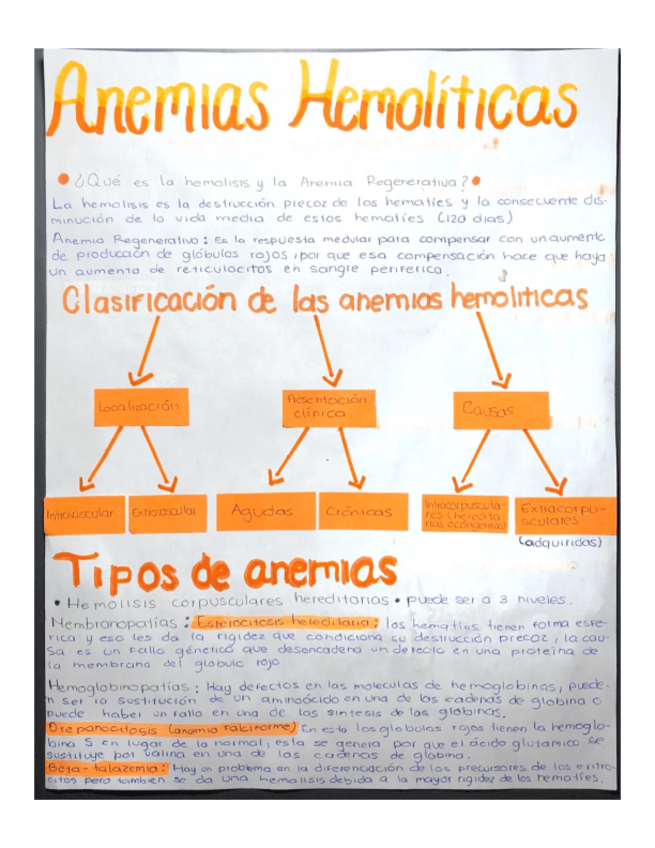 Anemias Hemolíticas
¿Qué es la hemolisis y la Anemia Regenerativa?
La hemolisis es la destrucción precoz de los hematíes y la consecuente dis-
minución de la vida media de estos hematíes (120 dias)
Anemia Regenerativa: Es la respuesta medular para compensar con un aumento
de producción de glóbulos rojos, por que esa compensación hace que haya
un aumento de reticulocitos en sangre periferica.
Clasificación de las anemias hemolíticas
Localización
Presentación
clínica
Causas
Intravascular
Extravascular
Agudas
Crónicas
Intracorpuscula-
res (heredita-
rias o congenitas)
Extracorpu-
sculares
(adquiridas)
Tipos de anemias
• Hemolisis corpusculares hereditarias • puede ser a 3 niveles.
Membranopatías: Esferocitosis hereditaria: los hematíes tienen forma esfe-
rica y eso les da la rigidez que condiciona su destrucción precoz, la cau-
sa es un fallo génetico que desencadena un defecto en una proteína de
la membrana del globulo rojo
Hemoglobinopatías: Hay defectos en las moleculas de hemoglobinas, puede-
n ser la sustitución de un aminoácido en una de las cadenas de globina o
puede haber un fallo en una de las sintesis de las globinas.
Drepanocitosis (anemia falciforme) En esta los globulos rojos tienen la hemoglo-
bina S en lugar de la normal, esta se genera por que el ácido glutamico se
sustituye por valina en una de las cadenas de globina.
Beta-talazemia: Hay un problema en la diferenciación de los precursores de los eritro-
citos pero tambien se da una hemolisis debida a la mayor rigidez de los hematíes.